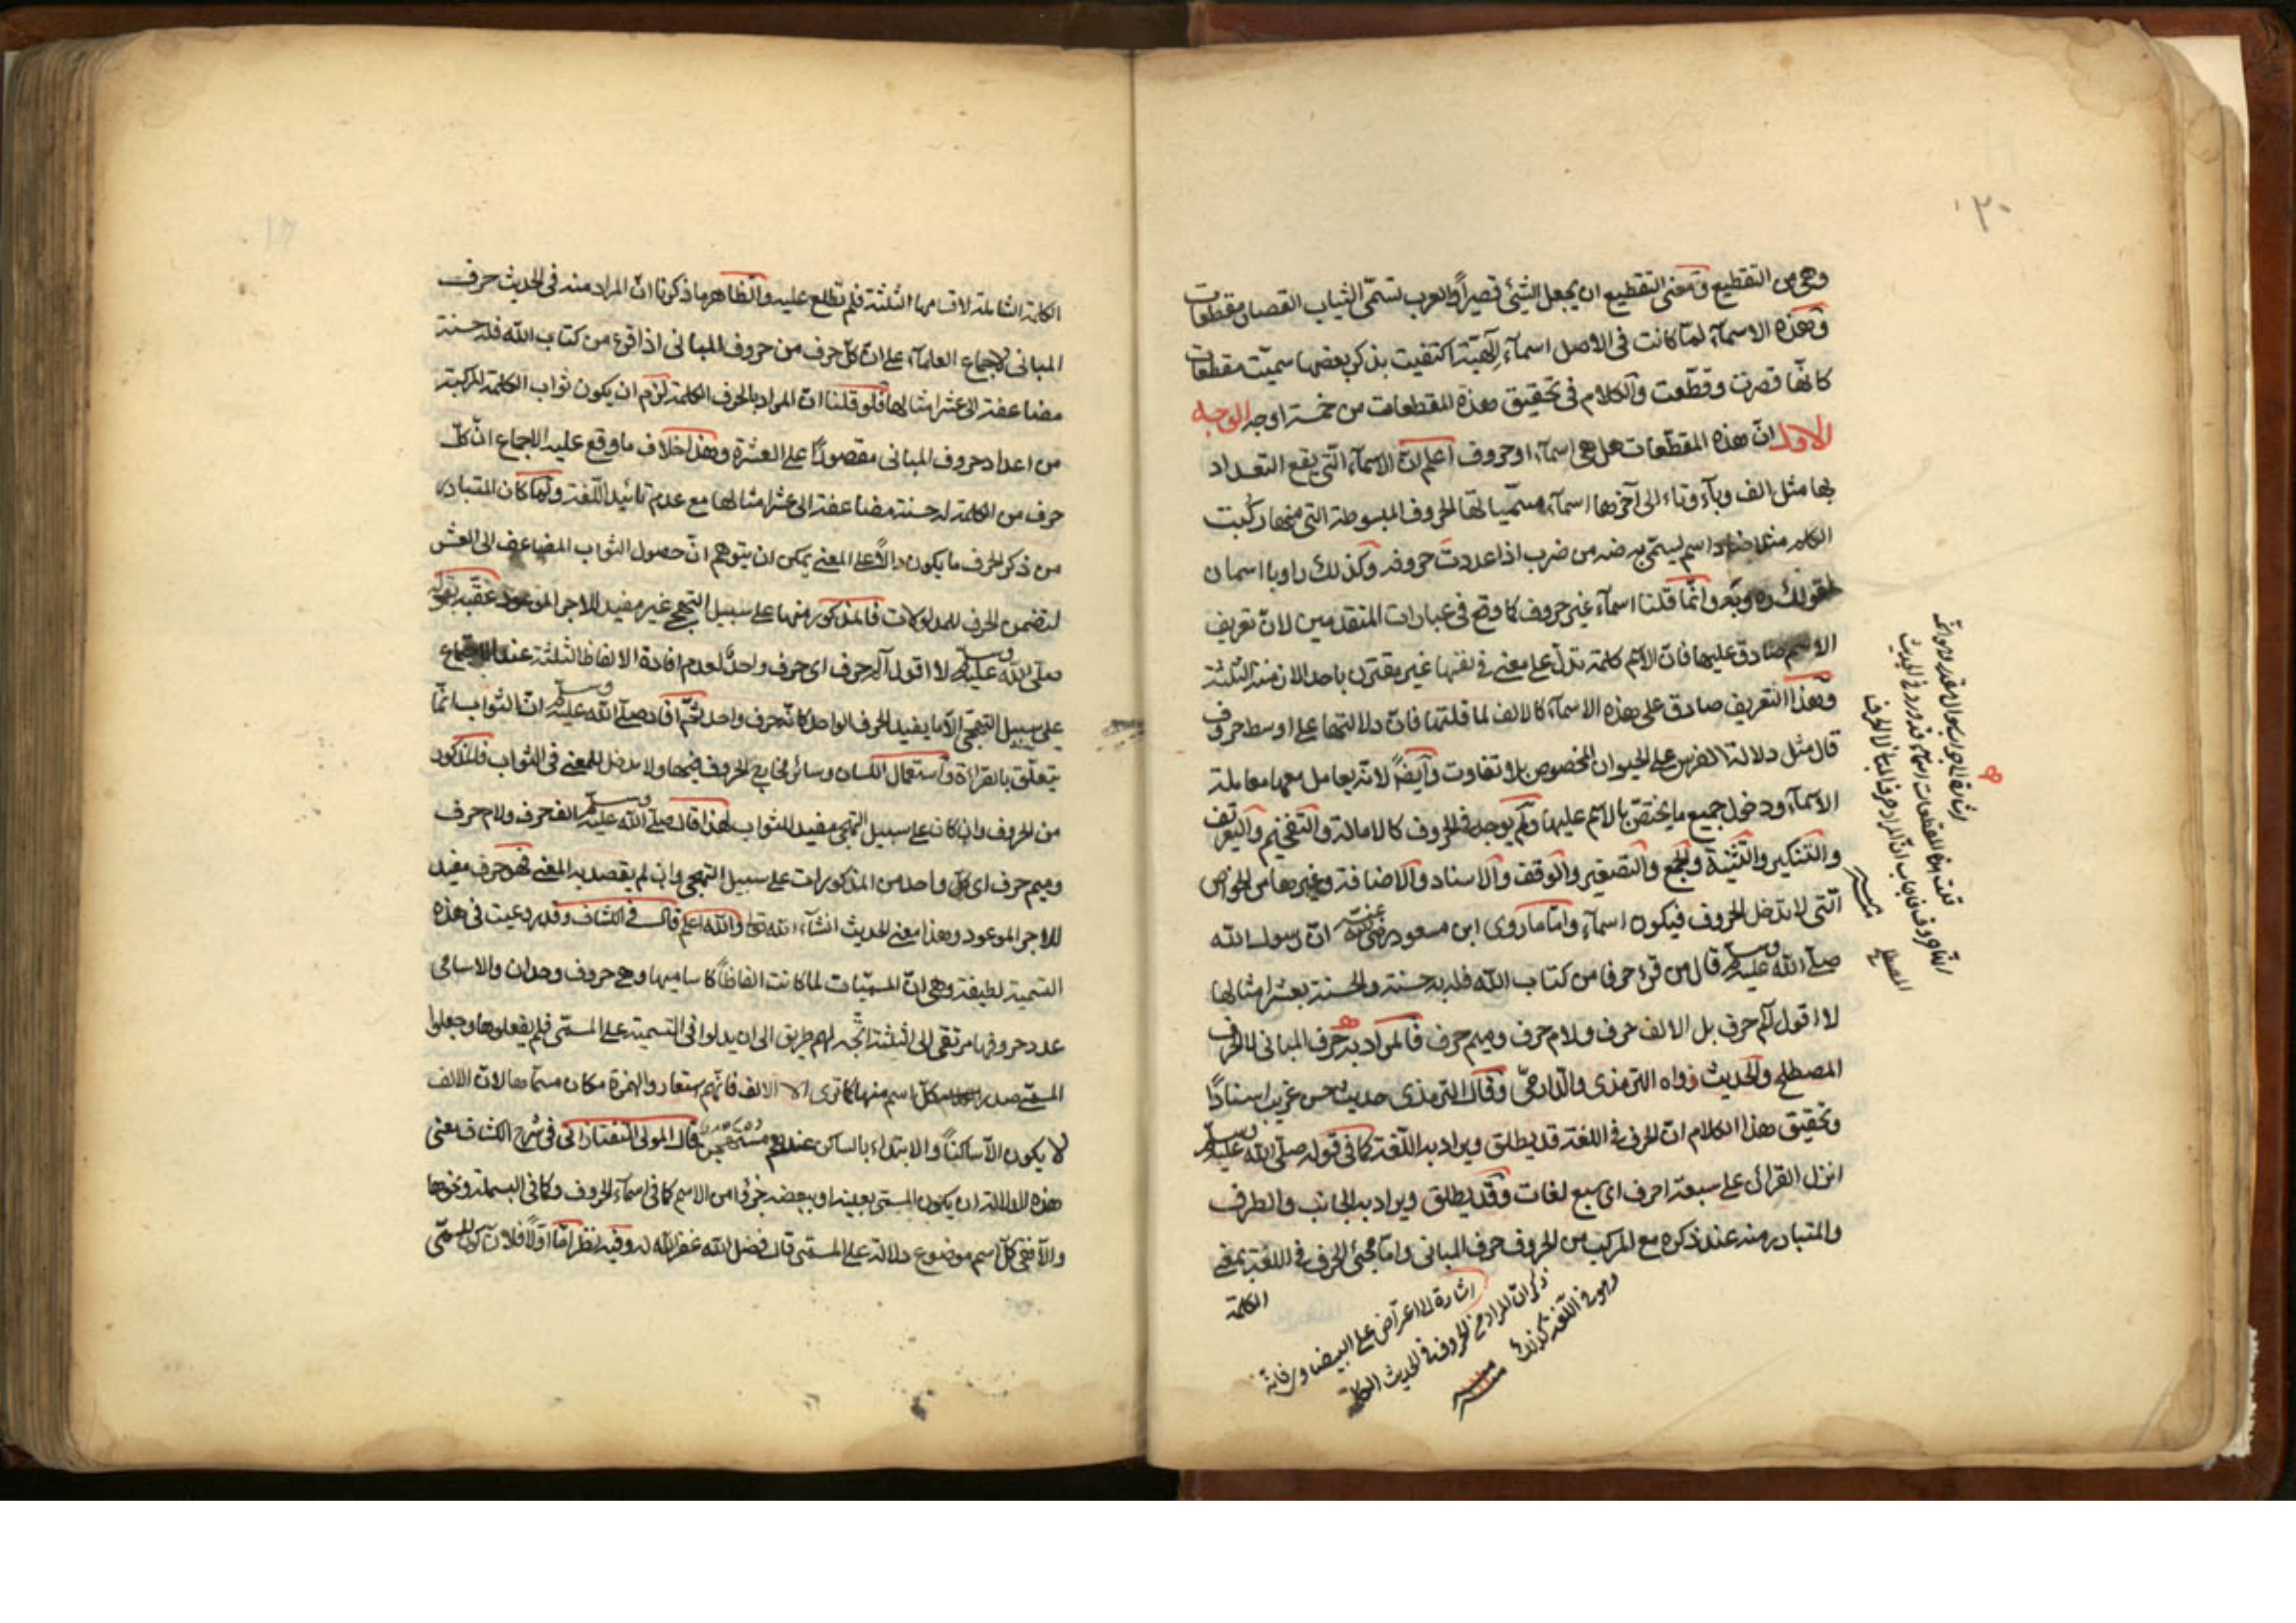 ٢٠
وهي من التقطيع ومعنى التقطيع ان يجعل الشئ قصيراً والعرب تسمّى الثياب القصار مقطعات
وهذه الاسمآء لمّا كانت في الاصل اسمآء إلهيّة اكتفيت بذكر بعضها سميّت مقطعات
كانّها قصرت وقطّعت والكلام في تحقيق هذه المقطعات من خمسة اوجه الوجه
الاول انّ هذه المقطّعات هل هي اسمآء او حروف اعلم انّ الاسمآء الّتي يقع التعداد
بها مثل الف وبآء وتاء الى آخرها اسمآء مسمّياتها الحروف المبسوطة التي منها ركّبت
الكلم مثلا ضاد اسم يسمّى به ضه من ضرب اذا عددت حروفه وكذلك را وبا اسمان
لقولك ره وبه وانّما قلنا اسمآء غير حروف كما وقع في عبارات المتقدمين لانّ تعريف
الاسم صادق عليها فانّ الاسم كلمة تدلّ على معنى في نفسها غير مقترن باحد الازمنة الثلثة
وهذا التعريف صادق على هذه الاسمآء كالالف لما قلتها فانّ دلالتها على اوسط حروف
قال مثل دلالة الفرس على الحيوان المخصوص بلا تفاوت وايضًا لانّه يعامل معها معاملة
الاسمآء ودخول جميع ما يختصّ بالاسم عليها ولم يوجد في الحروف كالامالة والتفخيم والتعريف
والتنكير والتثنية والجمع والتصغير والوقف والاسناد والاضافة وغيرها من الخواص
الّتي لا تدخل الحروف فيكون اسمآء وامّا ما روى ابن مسعود رضى الله عنه انّ رسول الله
صلّى الله عليه وسلم قال من قرء حرفا من كتاب الله فله به حسنة والحسنة بعشر امثالها
لا اقول الم حرف بل الالف حرف ولام حرف وميم حرف فالمراد به حرف المباني لا الحرف
المصطلح والحديث رواه الترمذى والدارمىّ وقال الترمذى حديث حسن غريب اسنادًا
وتحقيق هذا الكلام انّ الحرف في اللغة قد يطلق ويراد به اللّغة كما في قوله صلّى الله عليه وسلم
انزل القرآن على سبعة احرف اى سبع لغات وقد يطلق ويراد به الجانب والطرف
والمتبادر منه عند ذكره مع المركب من الحروف حرف المباني وامّا مجئ الحرف في اللغة بمعنى
الكلمة
اشارة الى اعتراض على البيضاوى فانّه
ذكر انّ المراد من الحروف في الحديث الكلمة
وهو في اللّغة كذلك
الكلمة الشاملة لاقسامها الثلثة فلم نطلع عليه والظاهر ما ذكرنا انّ المراد منه في الحديث حرف
المباني لاجماع العلمآء على انّ كلّ حرف من حروف المباني اذا قرء من كتاب الله فله حسنة
مضاعفة الى عشر امثالها فلو قلنا انّ المراد بالحرف الكلمة لزم ان يكون ثواب الكلمة المركبة
من اعداد حروف المباني مقصورًا على العشرة وهذا خلاف ما وقع عليه الاجماع انّ كلّ
حرف من الكلمة له حسنة مضاعفة الى عشر امثالها مع عدم تائيد اللّغة ولمّا كان المتبادر
من ذكر الحرف ما يكون دالًا على المعنى يمكن ان يتوهم انّ حصول الثواب المضاعف الى العشر
لتضمن الحرف للمدلولات فالمذكور منها على سبيل التهجى غير مفيد للاجر الموعود عقّبه بقوله
صلّى الله عليه وسلم لا اقول الم حرف اى حرف واحد لعدم افادة الالفاظ الثلثة عند
على سبيل التهجّى الّا ما يفيد الحرف الواحد كانّه حرف واحد ثمّ افاد صلّى الله عليه وسلم انّ الثواب انّما
يتعلّق بالقرائة واستعمال اللّسان وسائر مخارج الحروف فيها ولا مدخل للمعنى في الثواب فالمذكور
من الحروف وان كان على سبيل التهجى مفيد للثواب لهذا قال صلّى الله عليه وسلم الف حرف ولام حرف
وميم حرف اى كلّ واحد من المذكورات على سبيل التهجى وان لم يقصد به المعنى فهو حرف مفيد
للاجر الموعود وهذا معنى الحديث انشآء الله تعالى والله اعلم قال في الكشاف وقد روعيت في هذه
التسمية لطيفة وهى انّ المسمّيات لما كانت الفاظاً كاساميها وهى حروف وحدان والاسامى
عدد حروفها مرتقى الى الثلثة اتّجه لهم طريق الى ان يدلوا في التسمية على المسمّى فلم يغفلوها وجعلوا
المسمّى صدر كلّ اسم منها كما ترى الا الالف فانّهم استعاروا الهمزة مكان مسمّاها لانّ الالف
لا يكون الّا ساكناً والابتداء بالساكن عندهم مستهجن قال المولى التفتازانى في شرح الكشاف معنى
هذه الدلالة ان يكون المسمّى بعينه او ببعضه جزءا من الاسم كما في اسمآء الحروف وكما في البسملة ونحوها
والّا ففى كلّ اسم موضوع دلالة على المسمّى قال فضل الله غفر الله له وفيه نظر امّا اوّلًا فلانّ كون المسمّى